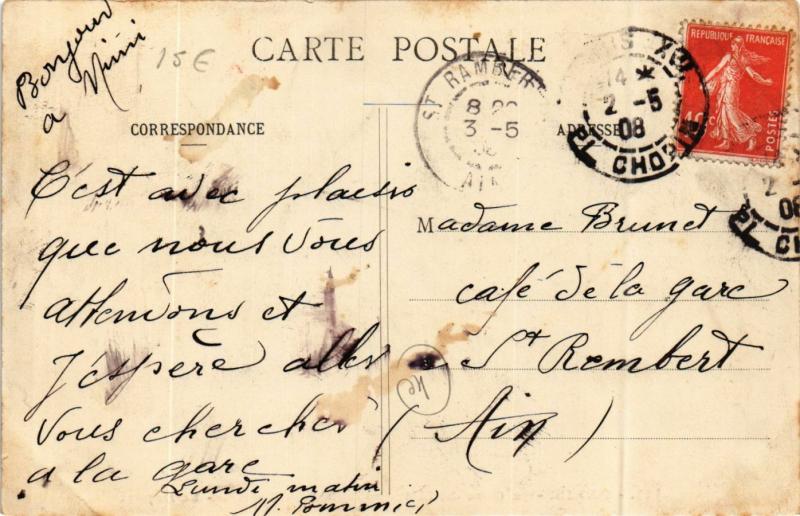 Bonjour
a Mimi
15€
CARTE POSTALE
CORRESPONDANCE
ADRESSE
ST RAMBER
3 -5
AIN
14 *
2 -5
08
PL CHOPIN
REPUBLIQUE FRANÇAISE
POSTES
C'est avec plaisir
que nous vous
attendons et
J'espère aller
vous chercher
a la gare
Lundi matin
Madame Brunet
café de la gare
St Rembert
(Ain)